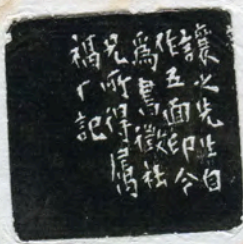 讓之先生自
作五面印今
爲書徵社
兄所得屬
福厂記